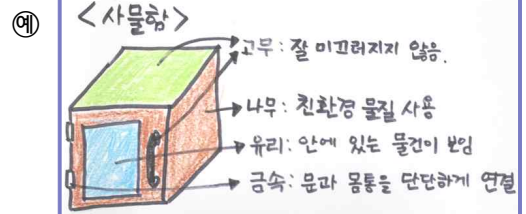 예
<사물함>
고무: 잘 미끄러지지 않음.
나무: 친환경 물질 사용
유리: 안에 있는 물건이 보임
금속: 문과 몸통을 단단하게 연결